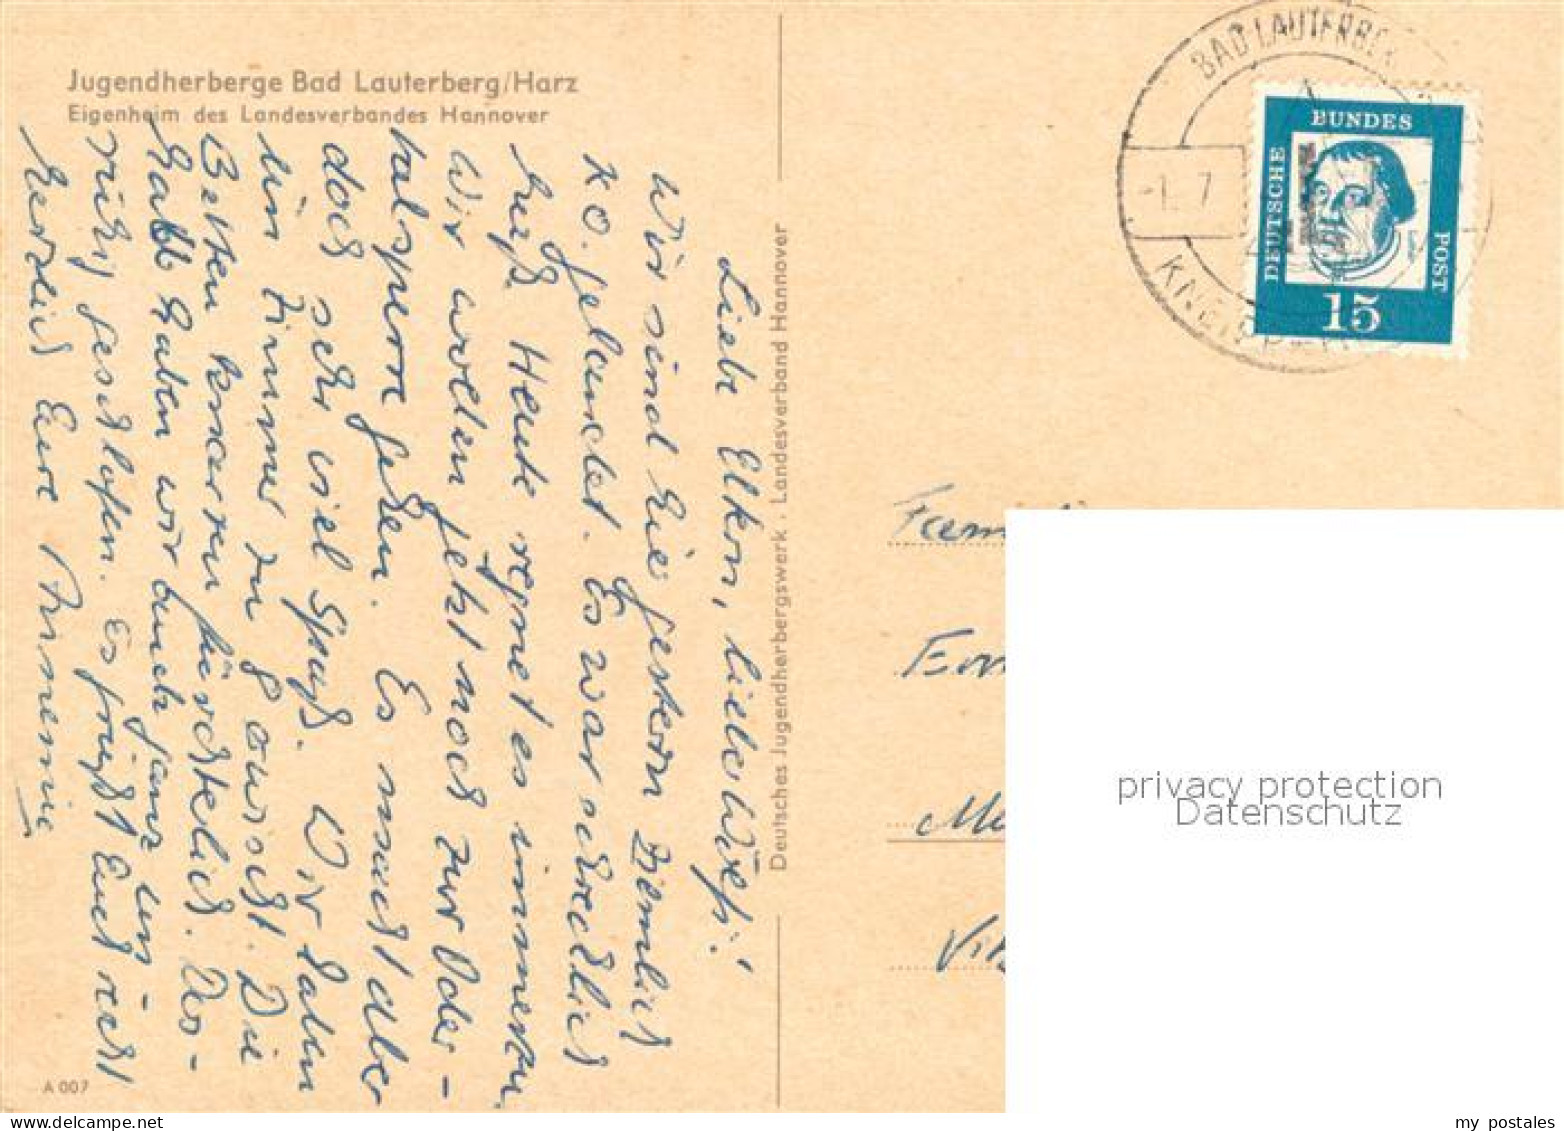 Jugendherberge Bad Lauterberg/Harz
Eigenheim des Landesverbandes Hannover
Liebe Eltern, liebe
Wir sind hier gestern ziemlich
k.o. gelandet. Es war schrecklich
heiß. Heute regnet es immerzu
Wir wollen jetzt noch zur Oder-
talsperre gehen. Es macht aber
doch sehr viel Spaß. Wir haben
ein Zimmer zu 8 erwischt. Die
Betten knarren fürchterlich. Des-
halb haben wir auch ganz un-
ruhig geschlafen. Es grüßt Euch recht
herzlich Eure Annemie
A 007
Deutsches Jugendherbergswerk · Landesverband Hannover
BAD LAUTERBER
-1. 7
KNEIPP
DEUTSCHE
BUNDES
POST
15
Fam
Em
privacy protection
Datenschutz
my postales